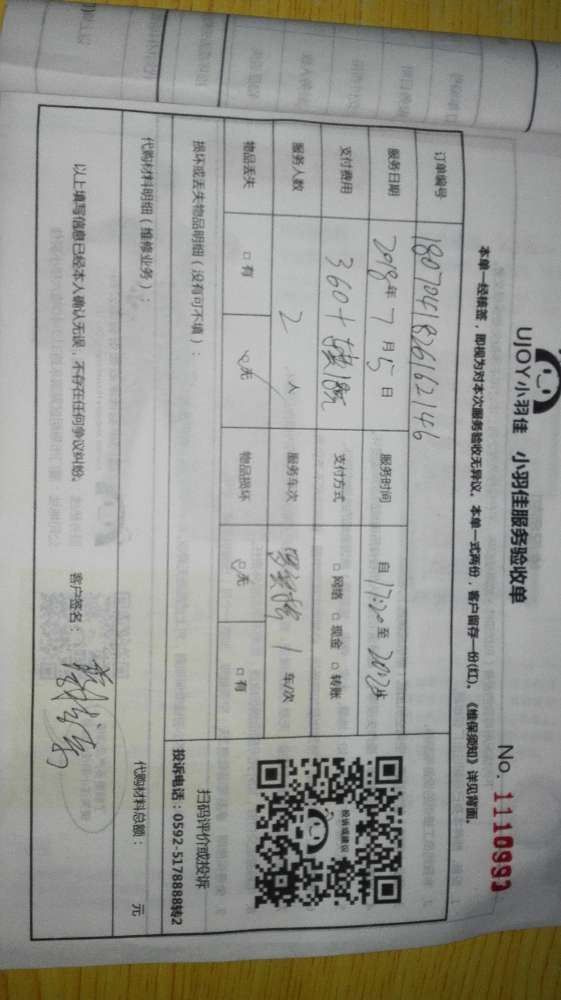 UJOY小羽佳 小羽佳服务验收单
No. 1110993
本单一经核签，即视为对本次服务验收无异议。本单一式两份，客户留存一份(红)。《维保须知》详见背面。
订单编号 1807041826162146
服务日期 2018年 7月 5日 服务时间 自 17:20 至
支付费用 360+ 支付方式 □ 网络 □ 现金 □ 转账
服务人数 2 人 服务车次 1 车/次
物品丢失 □ 有 □ 无 物品损坏 □ 无 □ 有
投诉或建议
扫码评价或投诉
投诉电话：0592-5178888转2
损坏或丢失物品明细（没有可不填）：
代购材料明细（维修业务）：
代购材料总额： 元
以上填写信息已经本人确认无误，不存在任何争议纠纷。 客户签名：